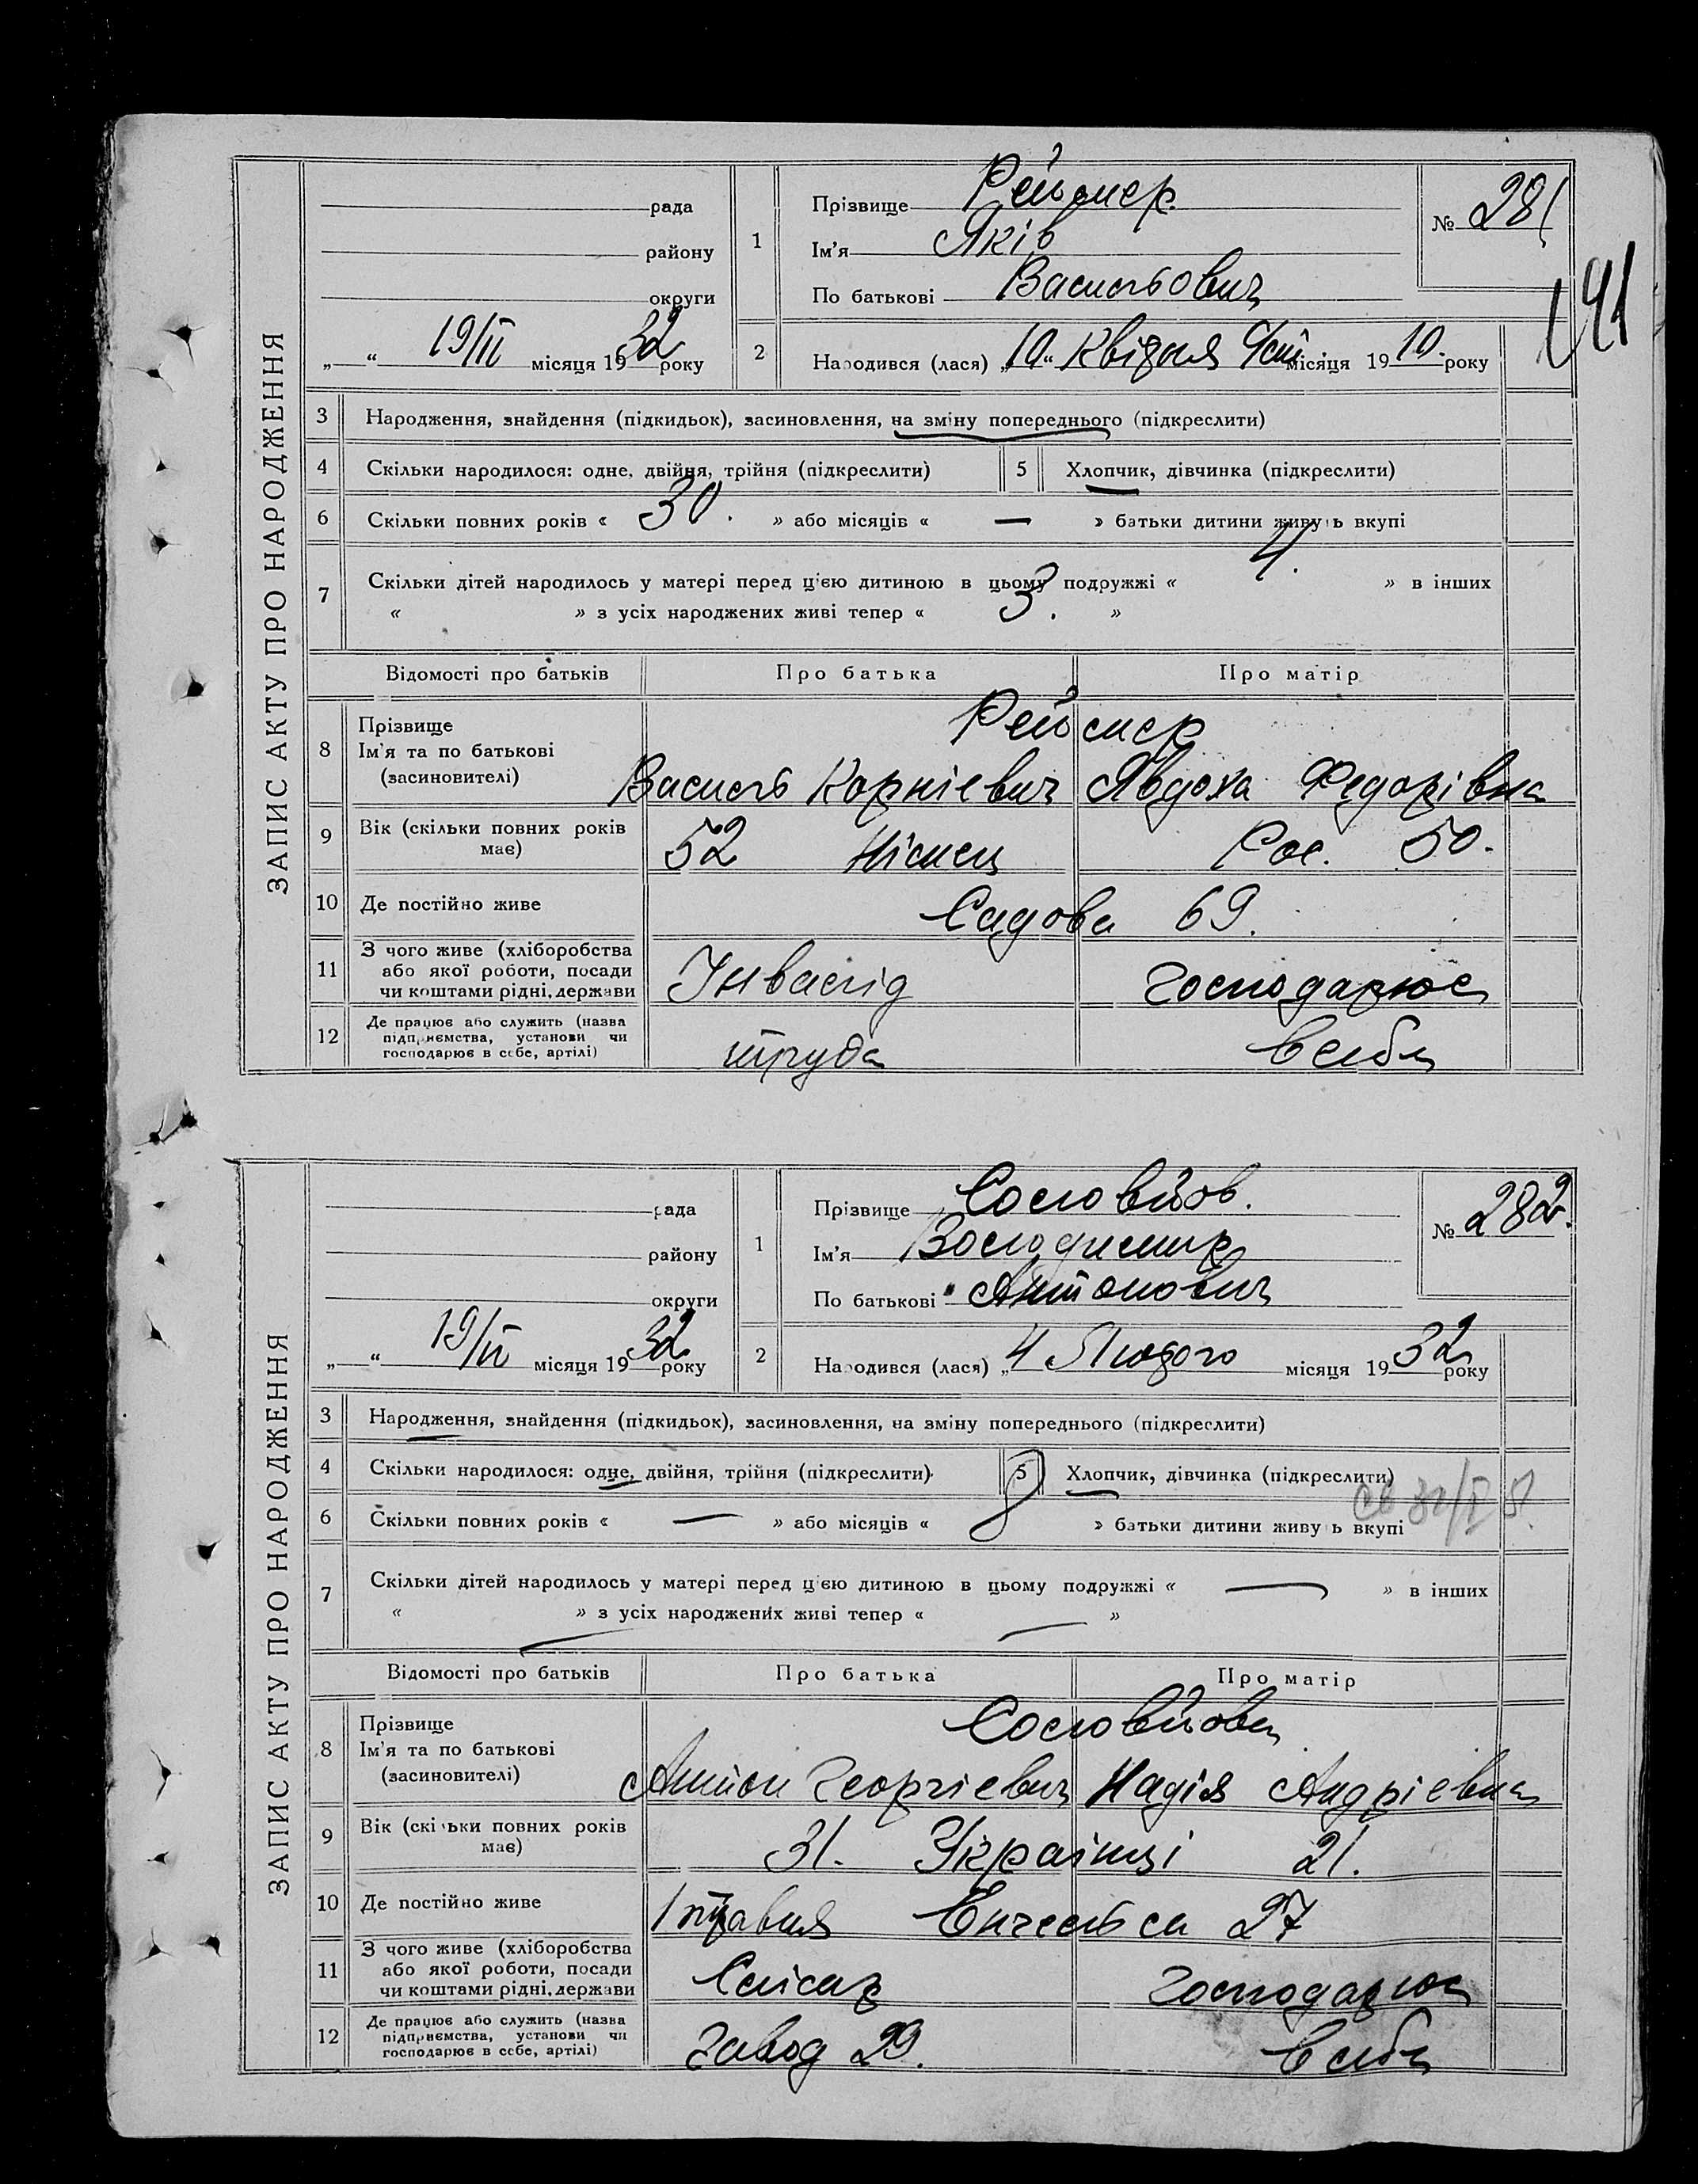 ЗАПИС АКТУ ПРО НАРОДЖЕННЯ
рада
району
округи
„ “ 19/II місяця 1932 року
1
Прізвище Реймер
Ім'я Яків
По батькові Васильович
№ 281
191
2
Народився (лася) „10“ Квітня місяця 1910. року
3 Народження, знайдення (підкидьок), засиновлення, на зміну попереднього (підкреслити)
4 Скільки народилося: одне, двійня, трійня (підкреслити) 5 Хлопчик, дівчинка (підкреслити)
6 Скільки повних років « 30. » або місяців « — » батьки дитини живуть вкупі
7 Скільки дітей народилось у матері перед цією дитиною в цьому подружжі « 4. » в інших
« » з усіх народжених живі тепер « 3. »
Відомості про батьків Про батька Про матір
8 Прізвище
Ім'я та по батькові
(засиновителі)
Реймер
Василь Корнієвич Явдоха Федорівна
9 Вік (скільки повних років має) 52 Німец Рос. 50.
10 Де постійно живе Садова 69.
11 З чого живе (хліборобства
або якої роботи, посади
чи коштами рідні, держави
Інвалід господарює
12 Де працює або служить (назва
підприємства, установи чи
господарює в себе, артілі)
труда в себе
ЗАПИС АКТУ ПРО НАРОДЖЕННЯ
рада
району
округи
„ “ 19/II місяця 1932 року
1
Прізвище Соловйов.
Ім'я Володимир
По батькові Антонович
№ 282.
2
Народився (лася) „4 Лютого місяця 1932 року
3 Народження, знайдення (підкидьок), засиновлення, на зміну попереднього (підкреслити)
4 Скільки народилося: одне, двійня, трійня (підкреслити) 5 Хлопчик, дівчинка (підкреслити)
6 Скільки повних років « — » або місяців « 8 » батьки дитини живуть вкупі
7 Скільки дітей народилось у матері перед цією дитиною в цьому подружжі « — » в інших
« — » з усіх народжених живі тепер « — »
Відомості про батьків Про батька Про матір
8 Прізвище
Ім'я та по батькові
(засиновителі)
Соловйови
Антон Георгієвич Надія Андрієвна
9 Вік (скільки повних років має) 31. Українці 21.
10 Де постійно живе 1 травня Енгельса 27
11 З чого живе (хліборобства
або якої роботи, посади
чи коштами рідні, держави
Слісар господарює
12 Де працює або служить (назва
підприємства, установи чи
господарює в себе, артілі)
Завод 29. в себе